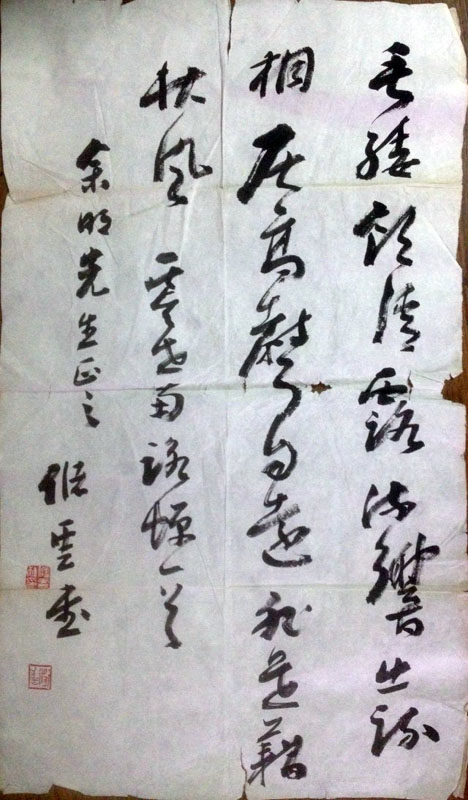 垂緌飲清露流響出疏
桐居高聲自遠非是藉
秋風 虞世南詠蟬一首
余明先生正之 雲書